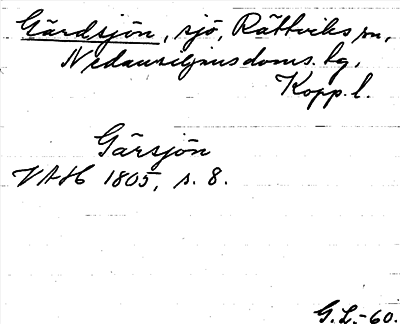 Gärdsjön, sjö, Rättviks sn,
Nedansiljans doms. hg,
Kopp. l.
Gärsjön
VAH 1805, s. 8.
G.L.-60.